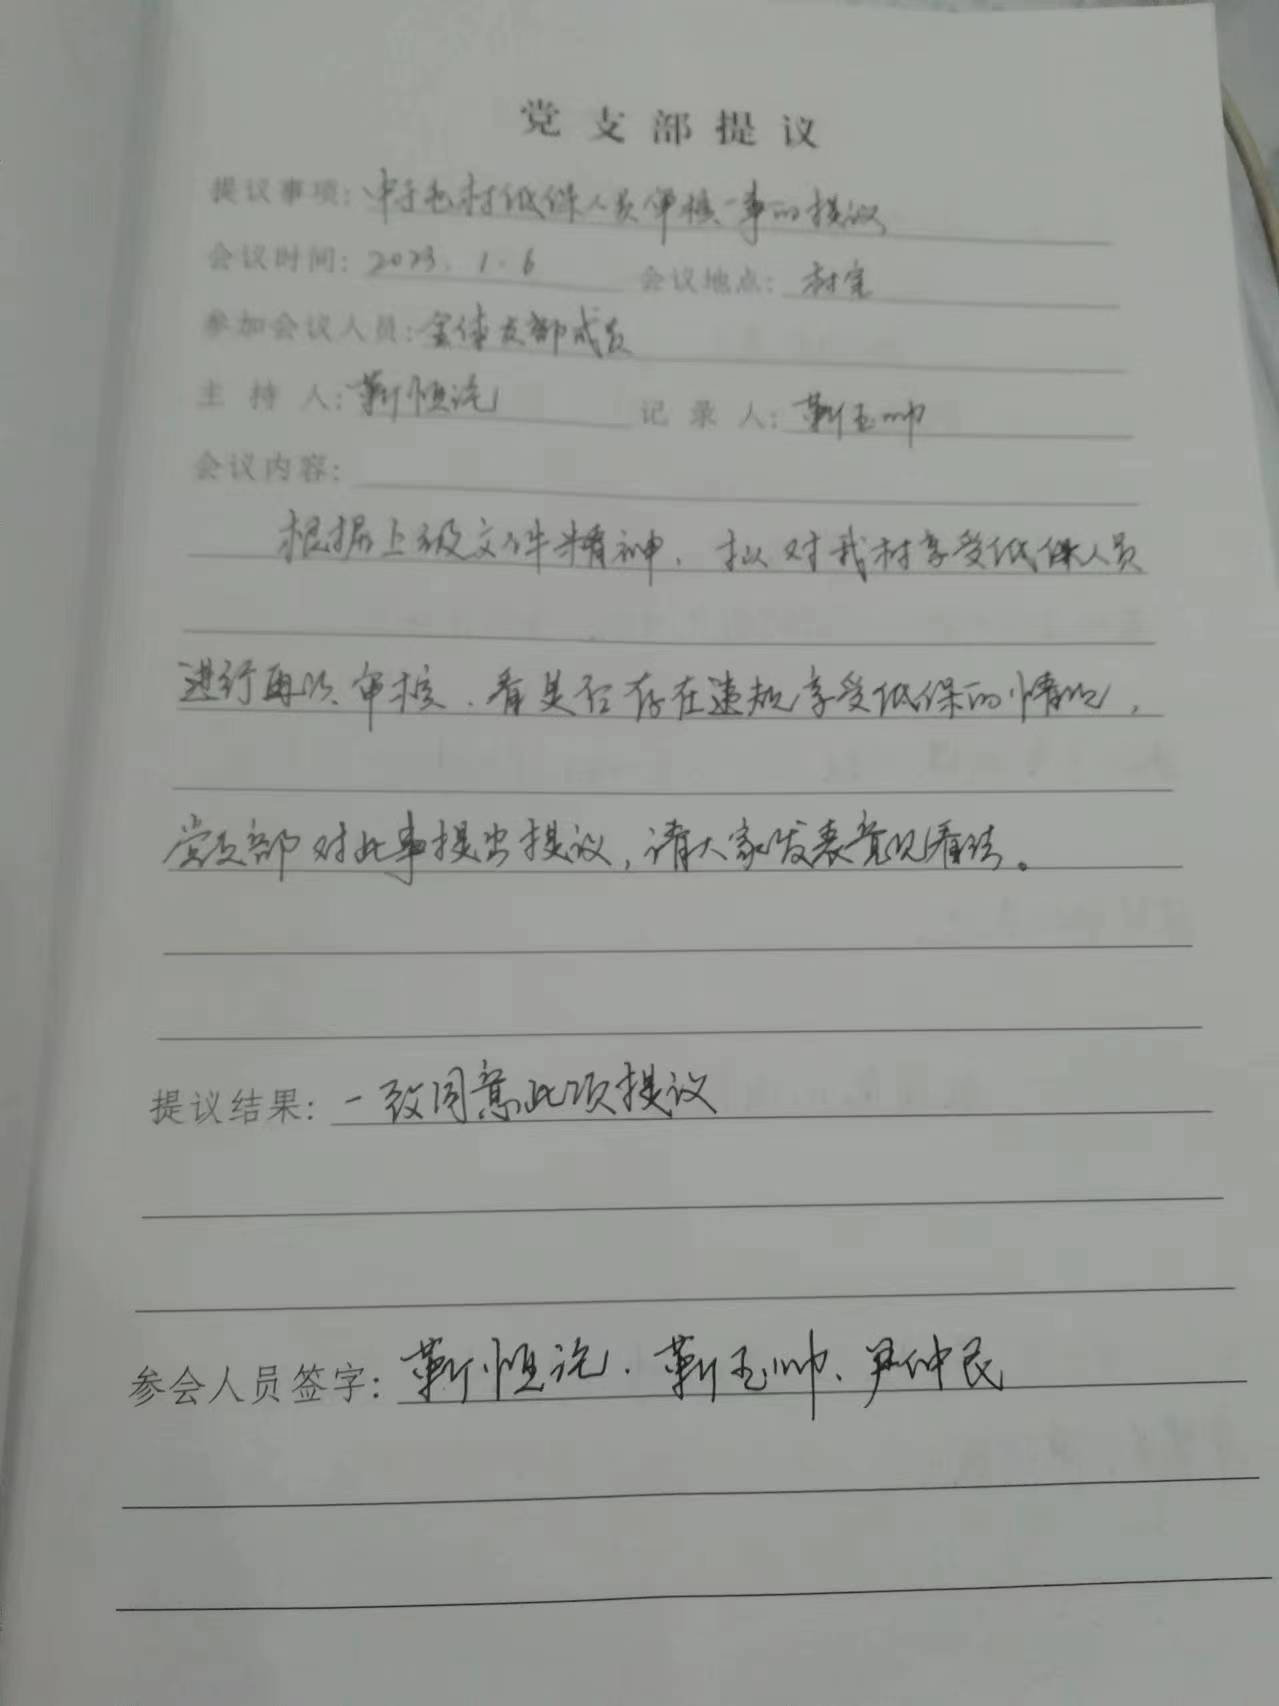 党支部提议
提议事项: 中于毛村低保人员审核一事的提议
会议时间: 2023.1.6 会议地点: 村室
参加会议人员: 全体支部成员
主持人: 靳恒 记录人: 靳玉帅
会议内容:
根据上级文件精神,拟对我村享受低保人员
进行再次审核,看是否存在违规享受低保的情况,
党支部对此事提出提议,请大家发表意见看法。
提议结果: 一致同意此项提议
参会人员签字: 靳恒、靳玉帅、尹仲民